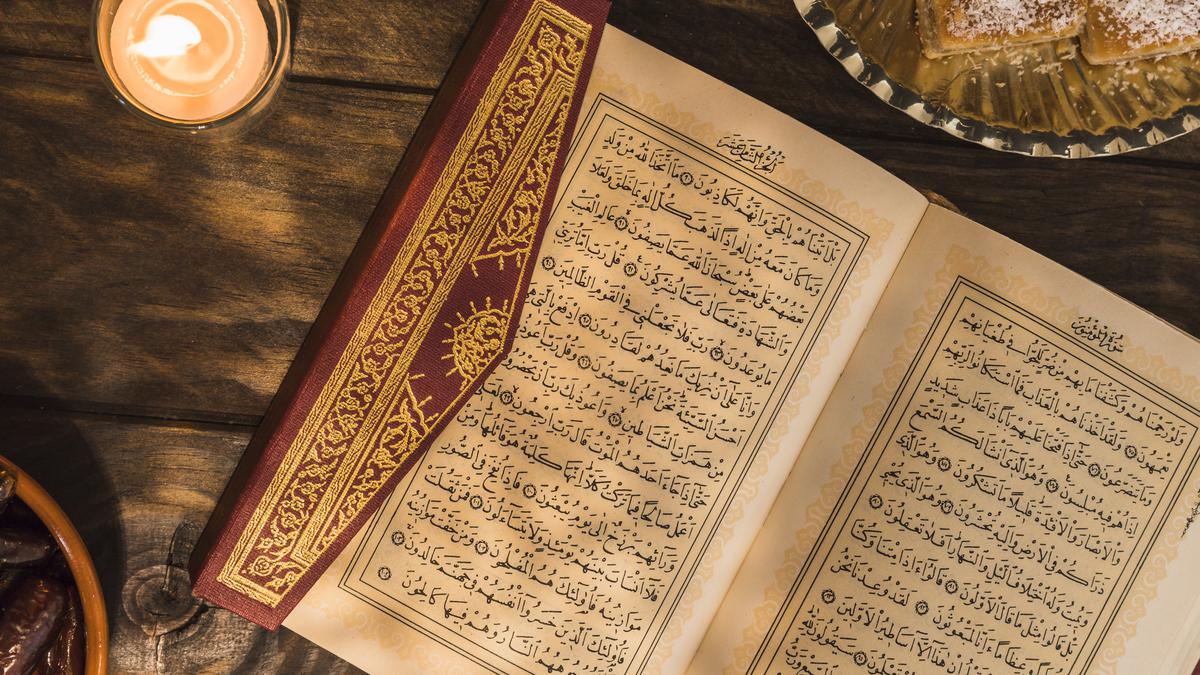 سورة المؤمنون
وَلَوْ رَحِمْنَاهُمْ وَكَشَفْنَا مَا بِهِمْ مِنْ ضُرٍّ لَلَجُّوا فِي طُغْيَانِهِمْ
يَعْمَهُونَ ﴿٧٥﴾ وَلَقَدْ أَخَذْنَاهُمْ بِالْعَذَابِ فَمَا اسْتَكَانُوا لِرَبِّهِمْ
وَمَا يَتَضَرَّعُونَ ﴿٧٦﴾ حَتَّى إِذَا فَتَحْنَا عَلَيْهِمْ بَابًا ذَا عَذَابٍ شَدِيدٍ
إِذَا هُمْ فِيهِ مُبْلِسُونَ ﴿٧٧﴾ وَهُوَ الَّذِي أَنْشَأَ لَكُمُ السَّمْعَ
وَالْأَبْصَارَ وَالْأَفْئِدَةَ قَلِيلًا مَا تَشْكُرُونَ ﴿٧٨﴾ وَهُوَ الَّذِي
ذَرَأَكُمْ فِي الْأَرْضِ وَإِلَيْهِ تُحْشَرُونَ ﴿٧٩﴾ وَهُوَ الَّذِي يُحْيِي
وَيُمِيتُ وَلَهُ اخْتِلَافُ اللَّيْلِ وَالنَّهَارِ أَفَلَا تَعْقِلُونَ ﴿٨٠﴾
بَلْ قَالُوا مِثْلَ مَا قَالَ الْأَوَّلُونَ ﴿٨١﴾ قَالُوا أَإِذَا مِتْنَا وَكُنَّا
تُرَابًا وَعِظَامًا أَإِنَّا لَمَبْعُوثُونَ ﴿٨٢﴾ لَقَدْ وُعِدْنَا نَحْنُ
إِنْ هَذَا إِلَّا أَسَاطِيرُ الْأَوَّلِينَ ﴿٨٣﴾
تَعْلَمُونَ ﴿٨٤﴾ سَيَقُولُونَ لِلَّهِ
الجزء الثامن عشر
بَلْ أَتَيْنَاهُمْ بِالْحَقِّ وَإِنَّهُمْ لَكَاذِبُونَ ﴿٩٠﴾ مَا اتَّخَذَ اللَّهُ مِنْ وَلَدٍ
وَمَا كَانَ مَعَهُ مِنْ إِلَهٍ إِذًا لَذَهَبَ كُلُّ إِلَهٍ بِمَا خَلَقَ وَلَعَلَا
بَعْضُهُمْ عَلَى بَعْضٍ سُبْحَانَ اللَّهِ عَمَّا يَصِفُونَ ﴿٩١﴾ عَالِمِ الْغَيْبِ
وَالشَّهَادَةِ فَتَعَالَى عَمَّا يُشْرِكُونَ ﴿٩٢﴾ قُلْ رَبِّ إِمَّا تُرِيَنِّي
مَا يُوعَدُونَ ﴿٩٣﴾ رَبِّ فَلَا تَجْعَلْنِي فِي الْقَوْمِ الظَّالِمِينَ ﴿٩٤﴾
وَإِنَّا عَلَى أَنْ نُرِيَكَ مَا نَعِدُهُمْ لَقَادِرُونَ ﴿٩٥﴾ ادْفَعْ بِالَّتِي هِيَ
أَحْسَنُ السَّيِّئَةَ نَحْنُ أَعْلَمُ بِمَا يَصِفُونَ ﴿٩٦﴾ وَقُلْ رَبِّ أَعُوذُ بِكَ
مِنْ هَمَزَاتِ الشَّيَاطِينِ ﴿٩٧﴾ وَأَعُوذُ بِكَ رَبِّ أَنْ يَحْضُرُونِ
حَتَّى إِذَا جَاءَ أَحَدَهُمُ الْمَوْتُ قَالَ رَبِّ ارْجِعُونِ ﴿٩٩﴾ لَعَلِّي
أَعْمَلُ صَالِحًا فِيمَا تَرَكْتُ كَلَّا إِنَّهَا كَلِمَةٌ هُوَ قَائِلُهَا وَمِنْ
وَرَائِهِمْ بَرْزَخٌ إِلَى يَوْمِ يُبْعَثُونَ ﴿١٠٠﴾ فَإِذَا نُفِخَ فِي الصُّورِ
فَلَا أَنْسَابَ بَيْنَهُمْ يَوْمَئِذٍ وَلَا يَتَسَاءَلُونَ ﴿١٠١﴾ فَمَنْ ثَقُلَتْ
مَوَازِينُهُ فَأُولَئِكَ هُمُ الْمُفْلِحُونَ ﴿١٠٢﴾ وَمَنْ خَفَّتْ مَوَازِينُهُ
فَأُولَئِكَ الَّذِينَ خَسِرُوا أَنْفُسَهُمْ فِي جَهَنَّمَ خَالِدُونَ ﴿١٠٣﴾
وُجُوهَهُمُ النَّارُ وَهُمْ فِيهَا كَالِحُونَ ﴿١٠٤﴾